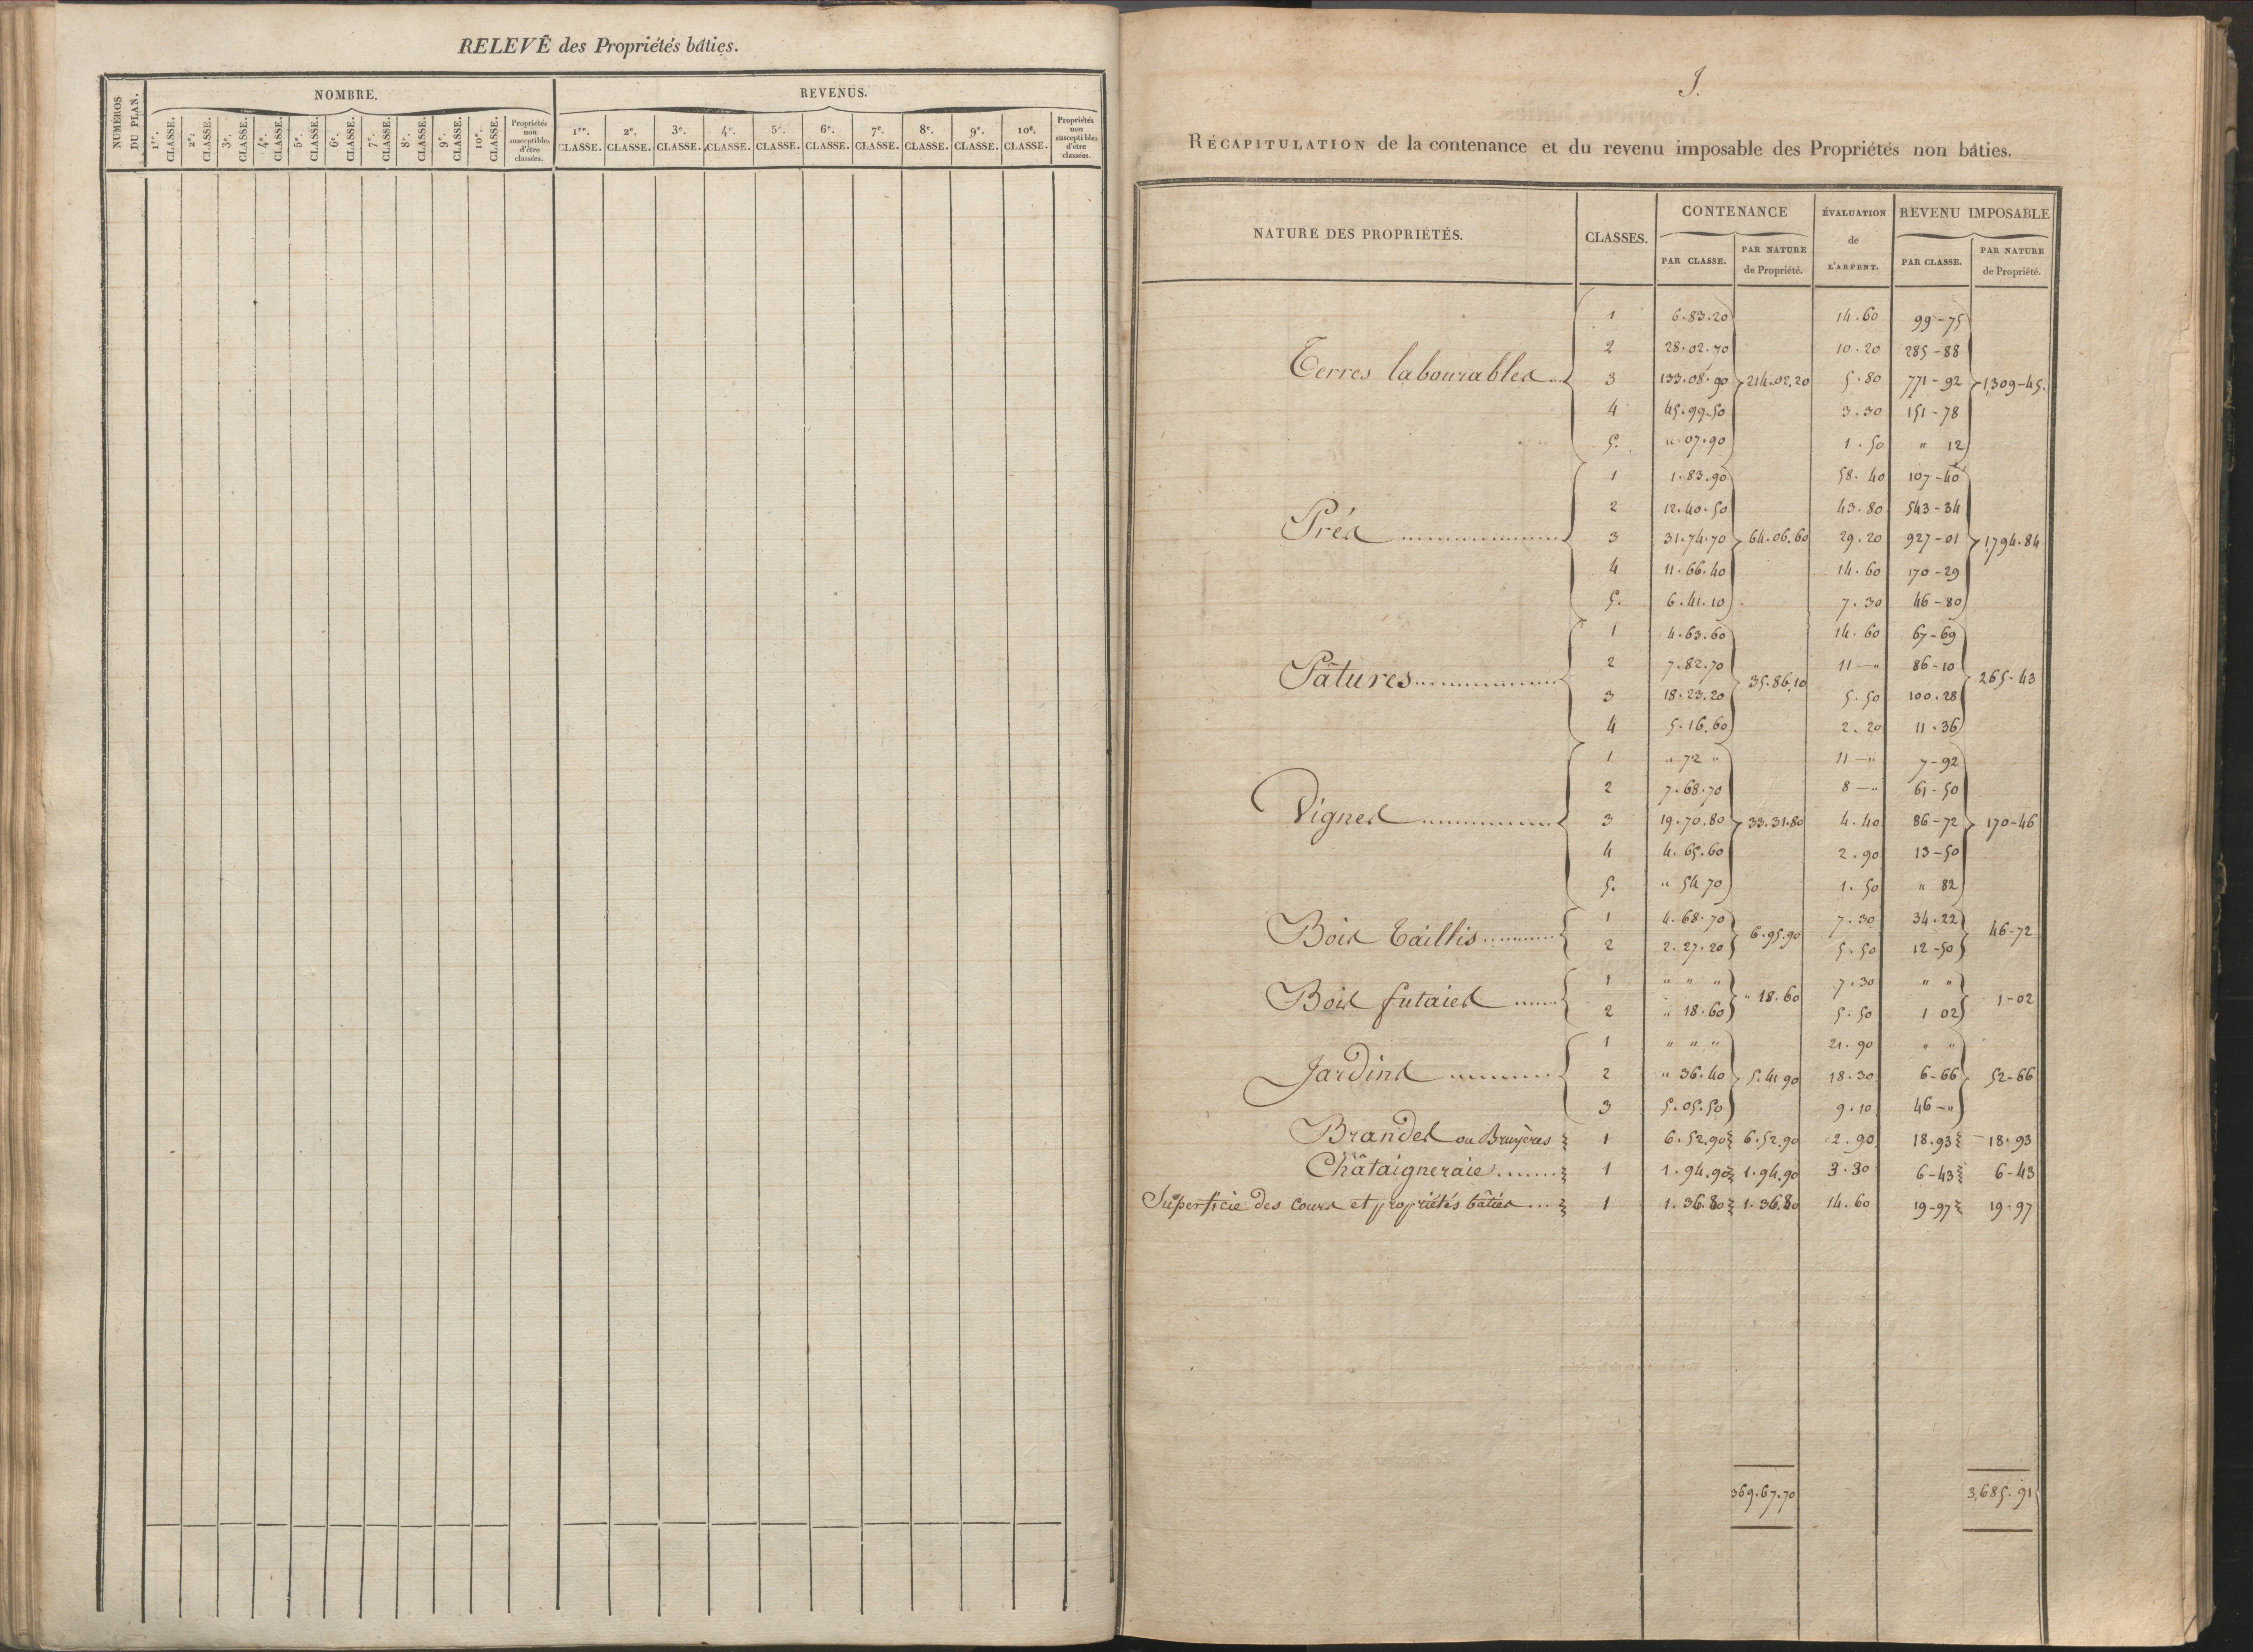 RELEVÉ des Propriétés bâties.
NUMEROS DU PLAN. NOMBRE. REVENUS.
1re. CLASSE. 2e. CLASSE. 3e. CLASSE. 4e. CLASSE. 5e. CLASSE. 6e. CLASSE. 7e. CLASSE. 8e. CLASSE. 9e. CLASSE. 10e. CLASSE. Propriétés non susceptibles d'être classées. 1re. CLASSE. 2e. CLASSE. 3e. CLASSE. 4e. CLASSE. 5e. CLASSE. 6e. CLASSE. 7e. CLASSE. 8e. CLASSE. 9e. CLASSE. 10e. CLASSE. Propriétés non susceptibles d'être classées.
J.
RÉCAPITULATION de la contenance et du revenu imposable des Propriétés non bâties.
NATURE DES PROPRIÉTÉS. CLASSES. CONTENANCE ÉVALUATION de L'ARPENT. REVENU IMPOSABLE
PAR CLASSE. PAR NATURE de Propriété. PAR CLASSE. PAR NATURE de Propriété.
1 6.83.20 14.60 99-75
2 28.02.70 10.20 285-88
Terres labourables 3 133.08.90 214.02.20 5.80 771-92 1309-45.
4 45.99.50 3.30 151-78
5. " 07.90 1.50 " 12
1 1.83.90 58.40 107-40
2 12.40.50 43.80 543-34
Prés 3 31.74.70 64.06.60 29.20 927-01 1,794.84
4 11.66.40 14.60 170-29
5. 6.41.10 7.30 46-80
1 4.63.60 14.60 67-69
2 7.82.70 11 — " 86-10
Pâtures 35.86.10 265-43
3 18.23.20 5.50 100.28
4 5.16.60 2.20 11.36
1 " 72 " 11 — " 7-92
2 7.68.70 8 — " 61-50
Vignes 3 19.70.80 33.31.80 4.40 86-72 170-46
4 4.65.60 2.90 13-50
5. " 54 70 1.50 " 82
1 4.68.70 7.30 34.22
Bois Taillis 6.95.90 46-72
2 2.27.20 5.50 12-50
1 " " " 7.30 " "
Bois futaies " 18.60 1-02
2 " 18.60 5.50 1 02
1 " " " 21.90 " "
Jardins 2 " 36.40 5.41 90 18.30 6-66 52-66
3 5.05.50 9.10 46 — "
Brandes ou Bruyères 1 6.52.90 6.52.90 2.90 18.93 18.93
Châtaigneraie 1 1.94.90 1.94.90 3.30 6-43 6-43
Superficie des Cours et propriétés bâties 1 1.36.80 1.36.80 14.60 19-97 19.97
369.67.70 3,685.91